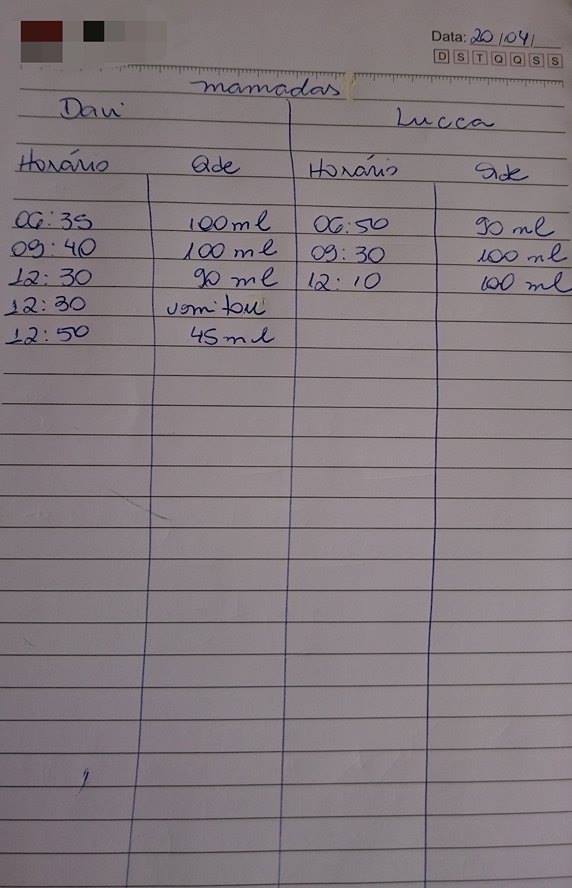 Data: 20/04/
D S T Q Q S S
mamadas
Davi Lucca
Horário Qde Horário Qde
06:35 100ml 06:50 90 ml
09:40 100 ml 09:30 100 ml
12:30 90 ml 12:10 100 ml
12:30 vomitou
12:50 45ml